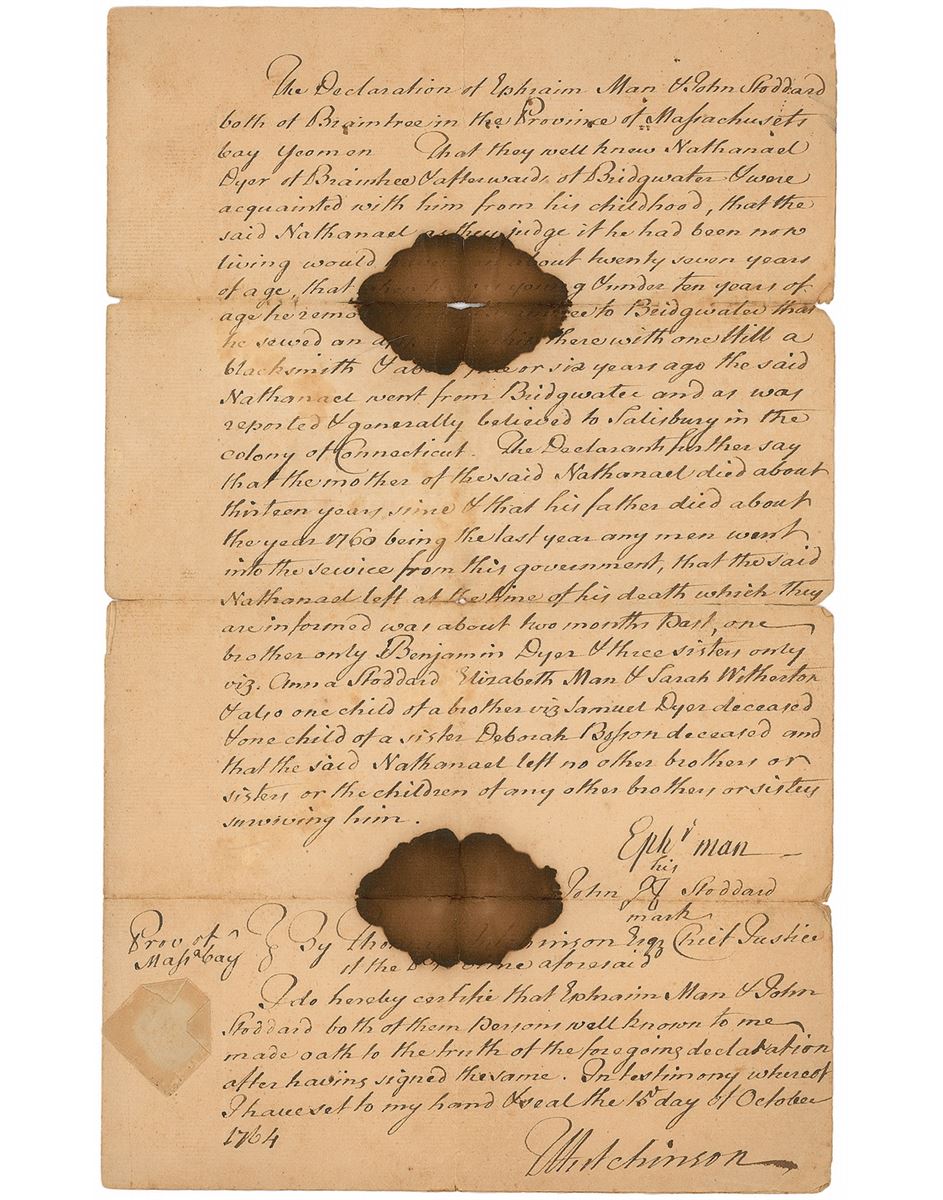 The Declaration of Ephraim Man & John Stoddard
both of Braintree in the Province of Massachusets
bay Yeomen That they well knew Nathanael
Dyer of Braintree & afterwards of Bridgwater & were
acquainted with him from his childhood, that the
said Nathanael as they judge if he had been now
living would about twenty seven years
of age, that when he was young & under ten years of
age he remo to Bridgwater that
he served an there with one Hill a
blacksmith & about five or six years ago the said
Nathanael went from Bridgwater and as was
reported & generally believed to Salisbury in the
colony of Connecticut. The Declarants further say
that the mother of the said Nathanael died about
thirteen years since & that his father died about
the year 1760 being the last year any men went
into the service from this government, that the said
Nathanael left at the time of his death which they
are informed was about two months past, one
brother only Benjamin Dyer & three sisters only
viz. Anna Stoddard Elizabeth Man & Sarah Witherton
& also one child of a brother viz Samuel Dyer deceased
& one child of a sister Deborah Besson deceased and
that the said Nathanael left no other brothers or
sisters or the children of any other brothers or sisters
surviving him.
Ephr man
his
John Stoddard
mark
Prov of
Massa bay
By Thomas Hutchinson Esqr Chief Justice
of the Province aforesaid
I do hereby certifie that Ephraim Man & John
Stoddard both of them persons well known to me
made oath to the truth of the foregoing declaration
after having signed the same. In testimony whereof
I have set to my hand & seal the 15 day of October
1764
T Hutchinson